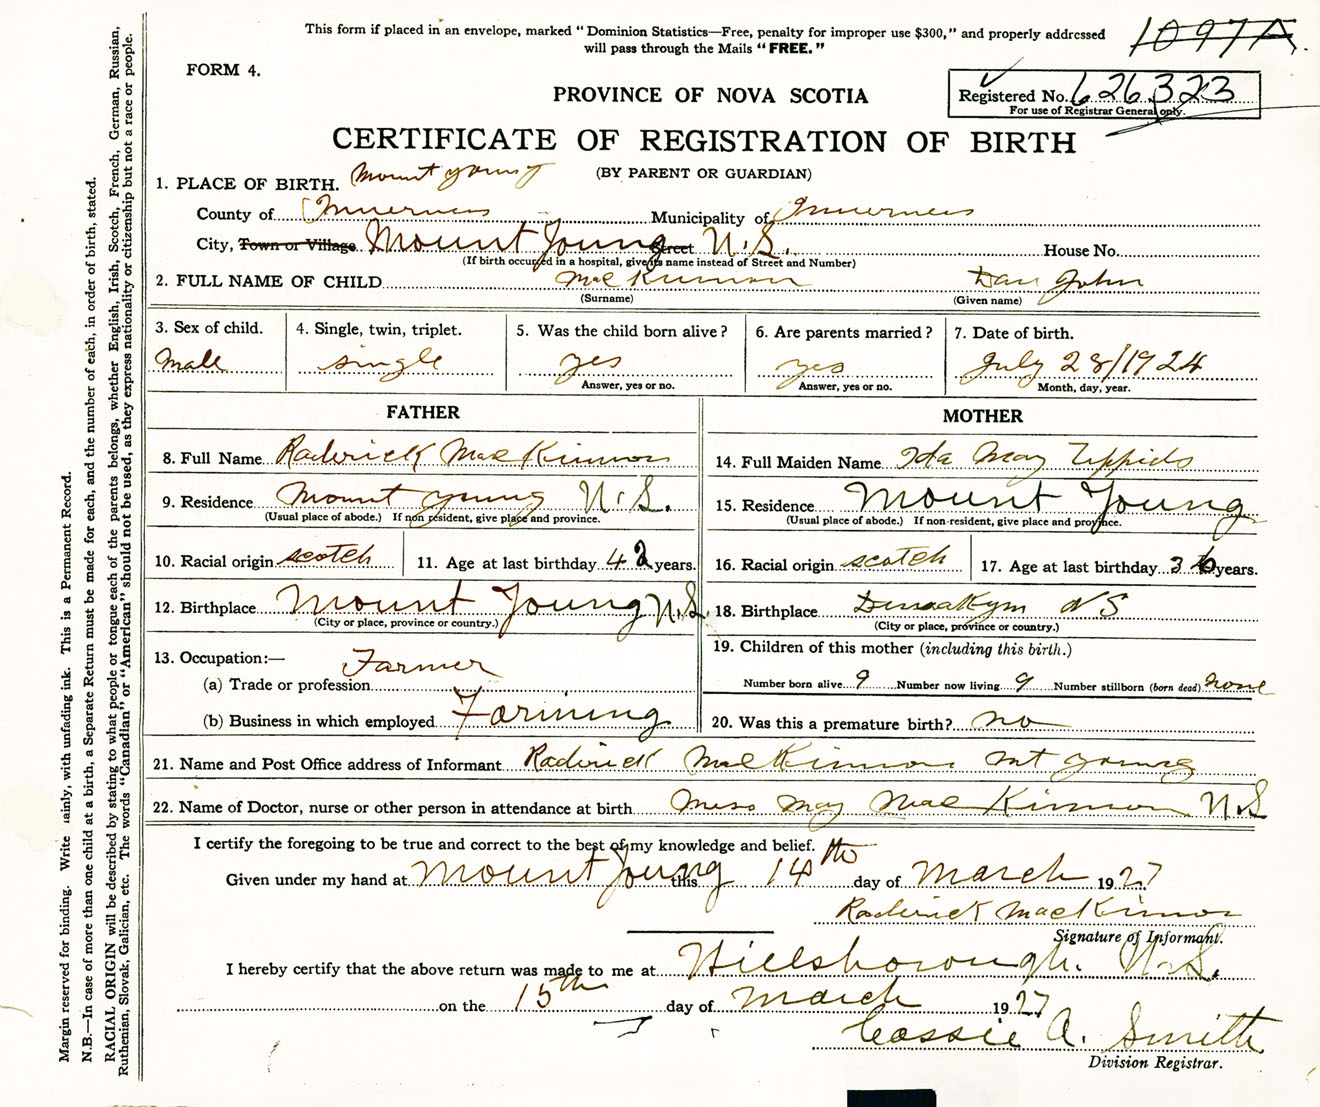 This form if placed in an envelope, marked "Dominion Statistics—Free, penalty for improper use $300," and properly addressed
will pass through the Mails "FREE."
1097A.
FORM 4.
PROVINCE OF NOVA SCOTIA
Registered No. 626323
For use of Registrar General only.
CERTIFICATE OF REGISTRATION OF BIRTH
(BY PARENT OR GUARDIAN)
1. PLACE OF BIRTH. Mount Young
County of Inverness Municipality of Inverness
City, Town or Village Mount Young Street N.S. House No.
(If birth occurred in a hospital, give its name instead of Street and Number)
2. FULL NAME OF CHILD Mac Kinnon Dan John
(Surname) (Given name)
3. Sex of child. 4. Single, twin, triplet. 5. Was the child born alive? 6. Are parents married? 7. Date of birth.
Male single yes yes July 28/1924
Answer, yes or no. Answer, yes or no. Month, day, year.
FATHER MOTHER
8. Full Name Roderick MacKinnon 14. Full Maiden Name Ida May
9. Residence Mount Young N.S. 15. Residence Mount Young
(Usual place of abode.) If non resident, give place and province. (Usual place of abode.) If non-resident, give place and province.
10. Racial origin scotch 11. Age at last birthday 42 years. 16. Racial origin scotch 17. Age at last birthday 36 years.
12. Birthplace Mount Young N.S. 18. Birthplace N S
(City or place, province or country.) (City or place, province or country.)
13. Occupation:— Farmer 19. Children of this mother (including this birth.)
(a) Trade or profession Number born alive 9 Number now living 9 Number stillborn (born dead) none
(b) Business in which employed Farming 20. Was this a premature birth? no
21. Name and Post Office address of Informant Roderick MacKinnon Mt Young
22. Name of Doctor, nurse or other person in attendance at birth Miss May Mac Kinnon N.S
I certify the foregoing to be true and correct to the best of my knowledge and belief.
Given under my hand at Mount Young this 14th day of March 1927
Roderick MacKinnon
Signature of Informant.
I hereby certify that the above return was made to me at Hillsborough. N.S.
on the 15th day of March 1927
Cassie A. Smith
Division Registrar.
Margin reserved for binding. Write lainly, with unfading ink. This is a Permanent Record.
N.B.—In case of more than one child at a birth, a Separate Return must be made for each, and the number of each, in order of birth, stated.
RACIAL ORIGIN will be described by stating to what people or tongue each of the parents belongs, whether English, Irish, Scotch, French, German, Russian,
Ruthenian, Slovak, Galician, etc. The words "Canadian" or "American" should not be used, as they express nationality or citizenship but not a race or people.